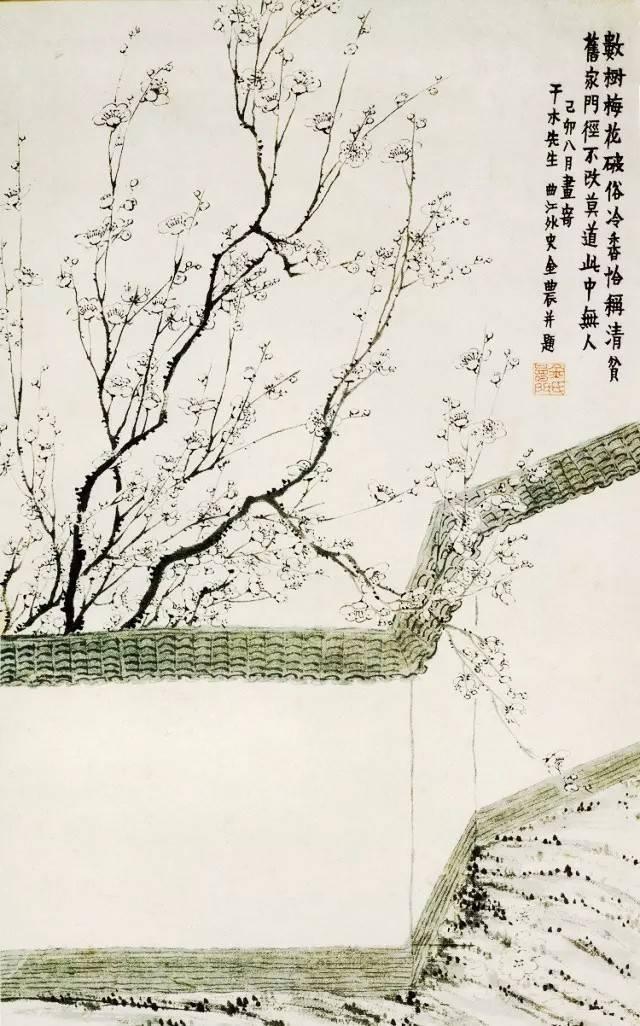 數樹梅花破俗冷香恰稱清貧
舊家門徑不改莫道此中無人
己卯八月畫寄
干木先生 曲江外史金農并題
金氏壽門